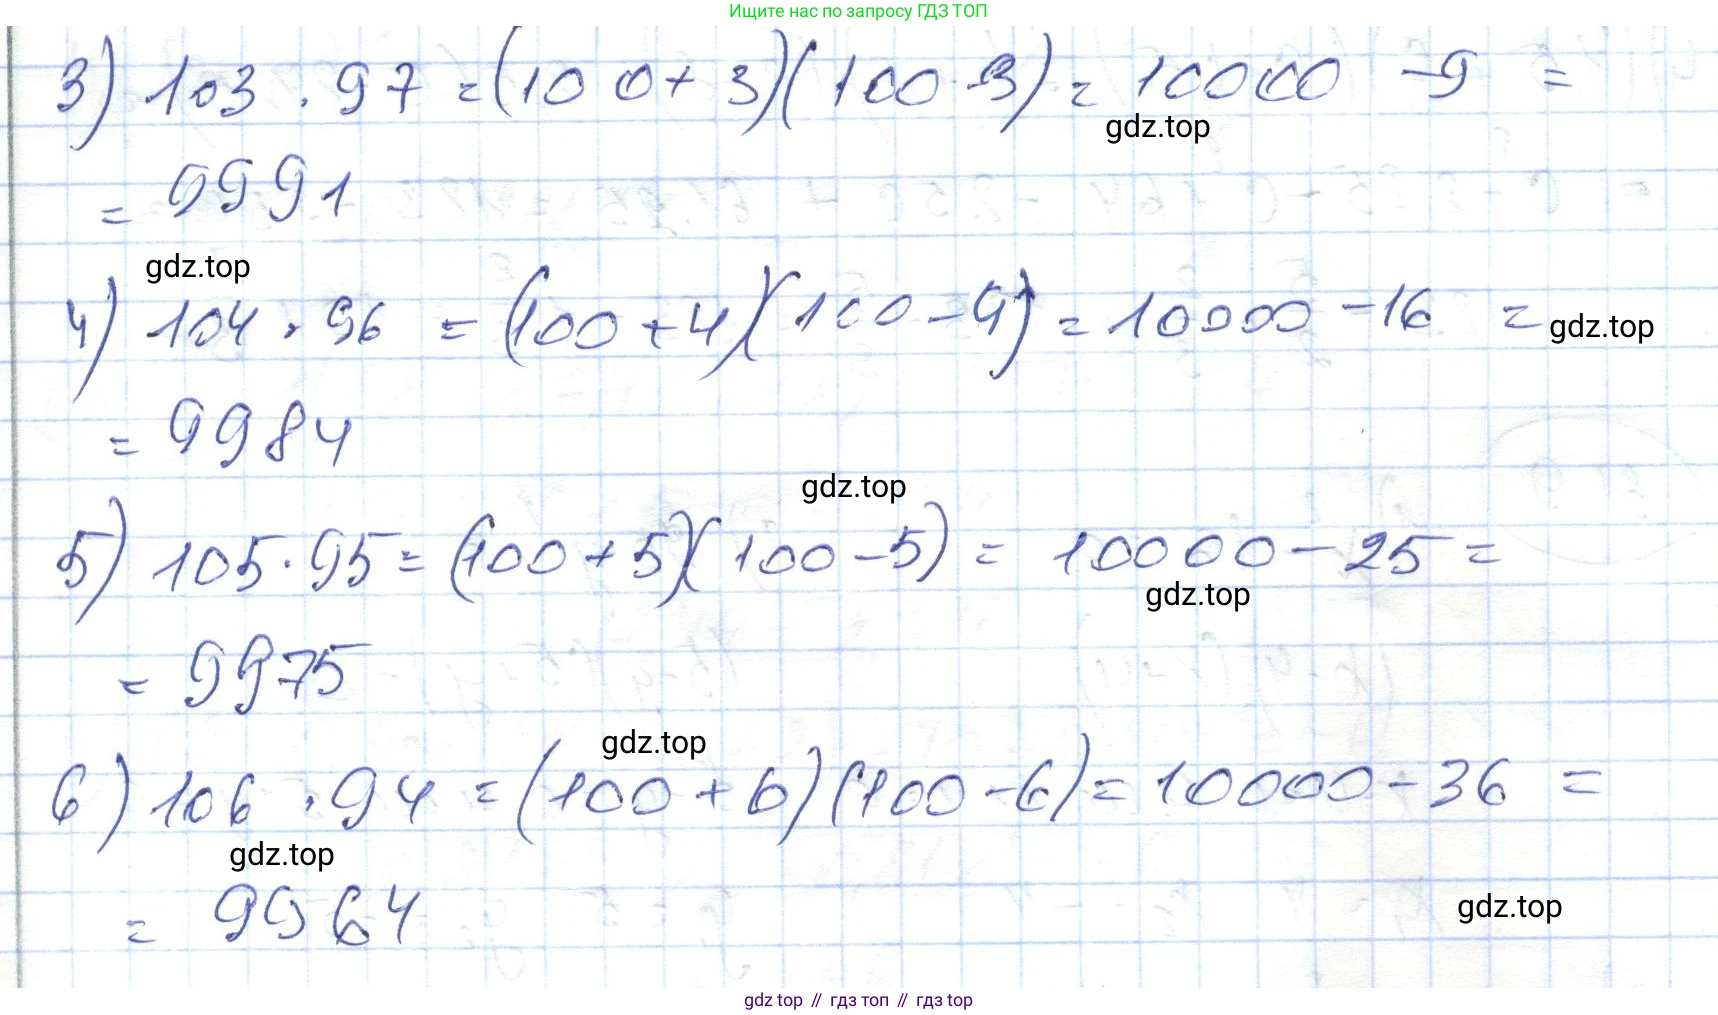 Ищите нас по запросу ГДЗ ТОП
3) 103 · 97 = (100 + 3)(100 - 3) = 10000 - 9 =
gdz.top
= 9991
gdz.top
4) 104 · 96 = (100 + 4)(100 - 4) = 10000 - 16 =
gdz.top
= 9984
gdz.top
5) 105 · 95 = (100 + 5)(100 - 5) = 10000 - 25 =
gdz.top
= 9975
gdz.top
6) 106 · 94 = (100 + 6)(100 - 6) = 10000 - 36 =
gdz.top
= 9964
gdz.top
gdz top // гдз топ // гдз top